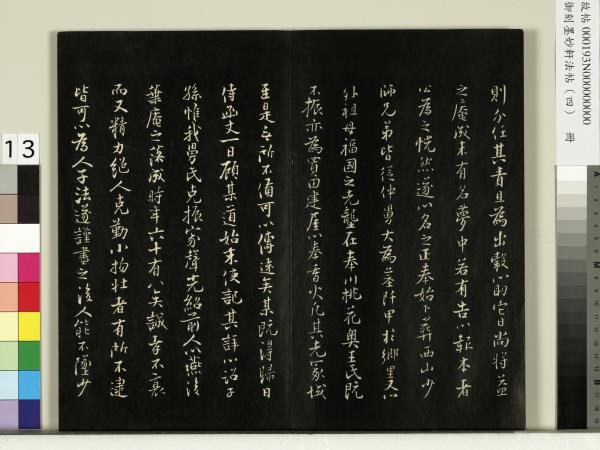 故帖 000193N000000000
御刻墨妙軒法帖（四） 冊
則分任其責且為出穀以助它日尚將益
之庵成未有名夢中若有告以報本者
公為之怳然遂以名之正奉始下葬西山少
師兄弟皆從仲舅大為墓阡甲於鄉里又以
外祖母福國之先壟在奉川桃花奧王氏既
不振亦為買田建屋以奉香火凡其先冢域
至是無所不備可以傳遠矣某既得歸日
侍函丈一日顧某道始末使記其詳以詔子
孫惟我舅氏克振家聲光紹前人以燕後
葉庵之落成時年六十有八矣誠孝不衰
而又精力絕人克勤小物壯者有所不逮
皆可以為人子法遂謹書之後人能不墜少
13